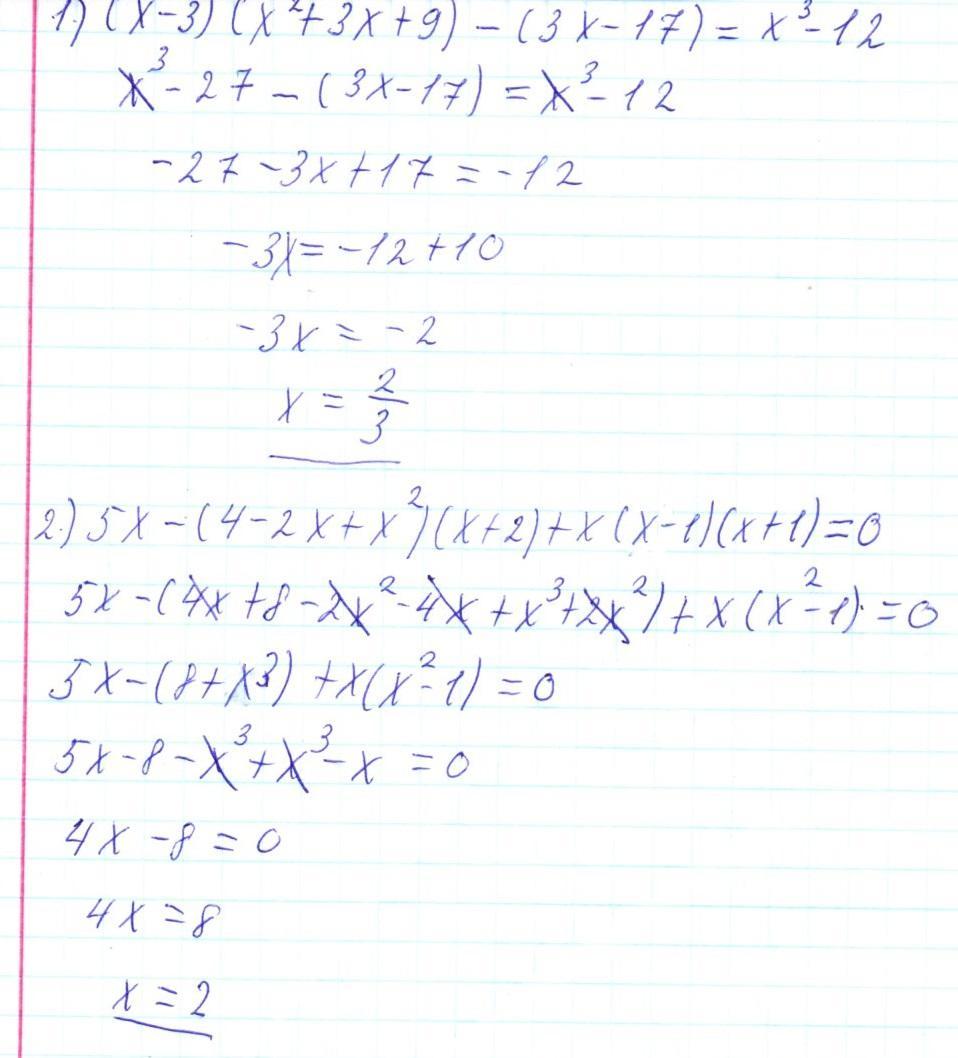 1.) (x-3)(x²+3x+9)-(3x-17)=x³-12
x³-27-(3x-17)=x³-12
-27-3x+17=-12
-3x=-12+10
-3x=-2
x=2/3
2.) 5x-(4-2x+x²)(x+2)+x(x-1)(x+1)=0
5x-(4x+8-2x²-4x+x³+2x²)+x(x²-1)=0
5x-(8+x³)+x(x²-1)=0
5x-8-x³+x³-x=0
4x-8=0
4x=8
x=2